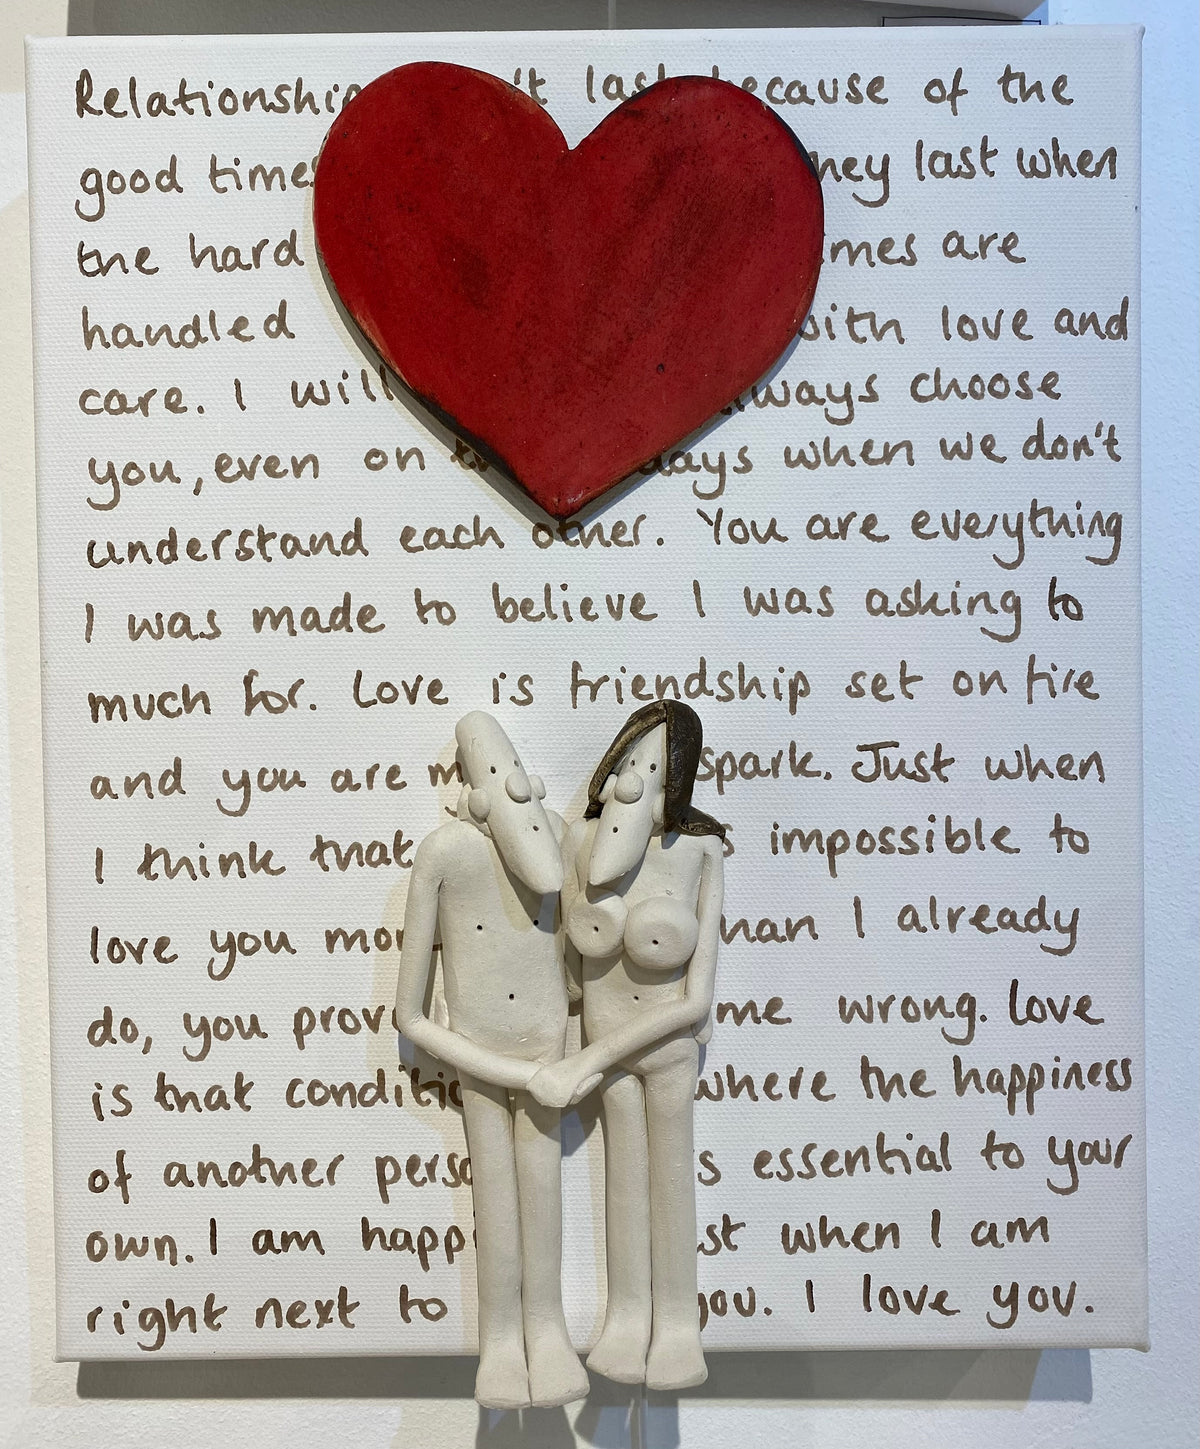 Relationship 't last because of the
good times they last when
the hard times are
handled with love and
care. I will always choose
you, even on the days when we don't
understand each other. You are everything
I was made to believe I was asking to
much for. Love is friendship set on fire
and you are my spark. Just when
I think that impossible to
love you more than I already
do, you prove me wrong. Love
is that condition where the happiness
of another person is essential to your
own. I am when I am
right next to you. I love you.